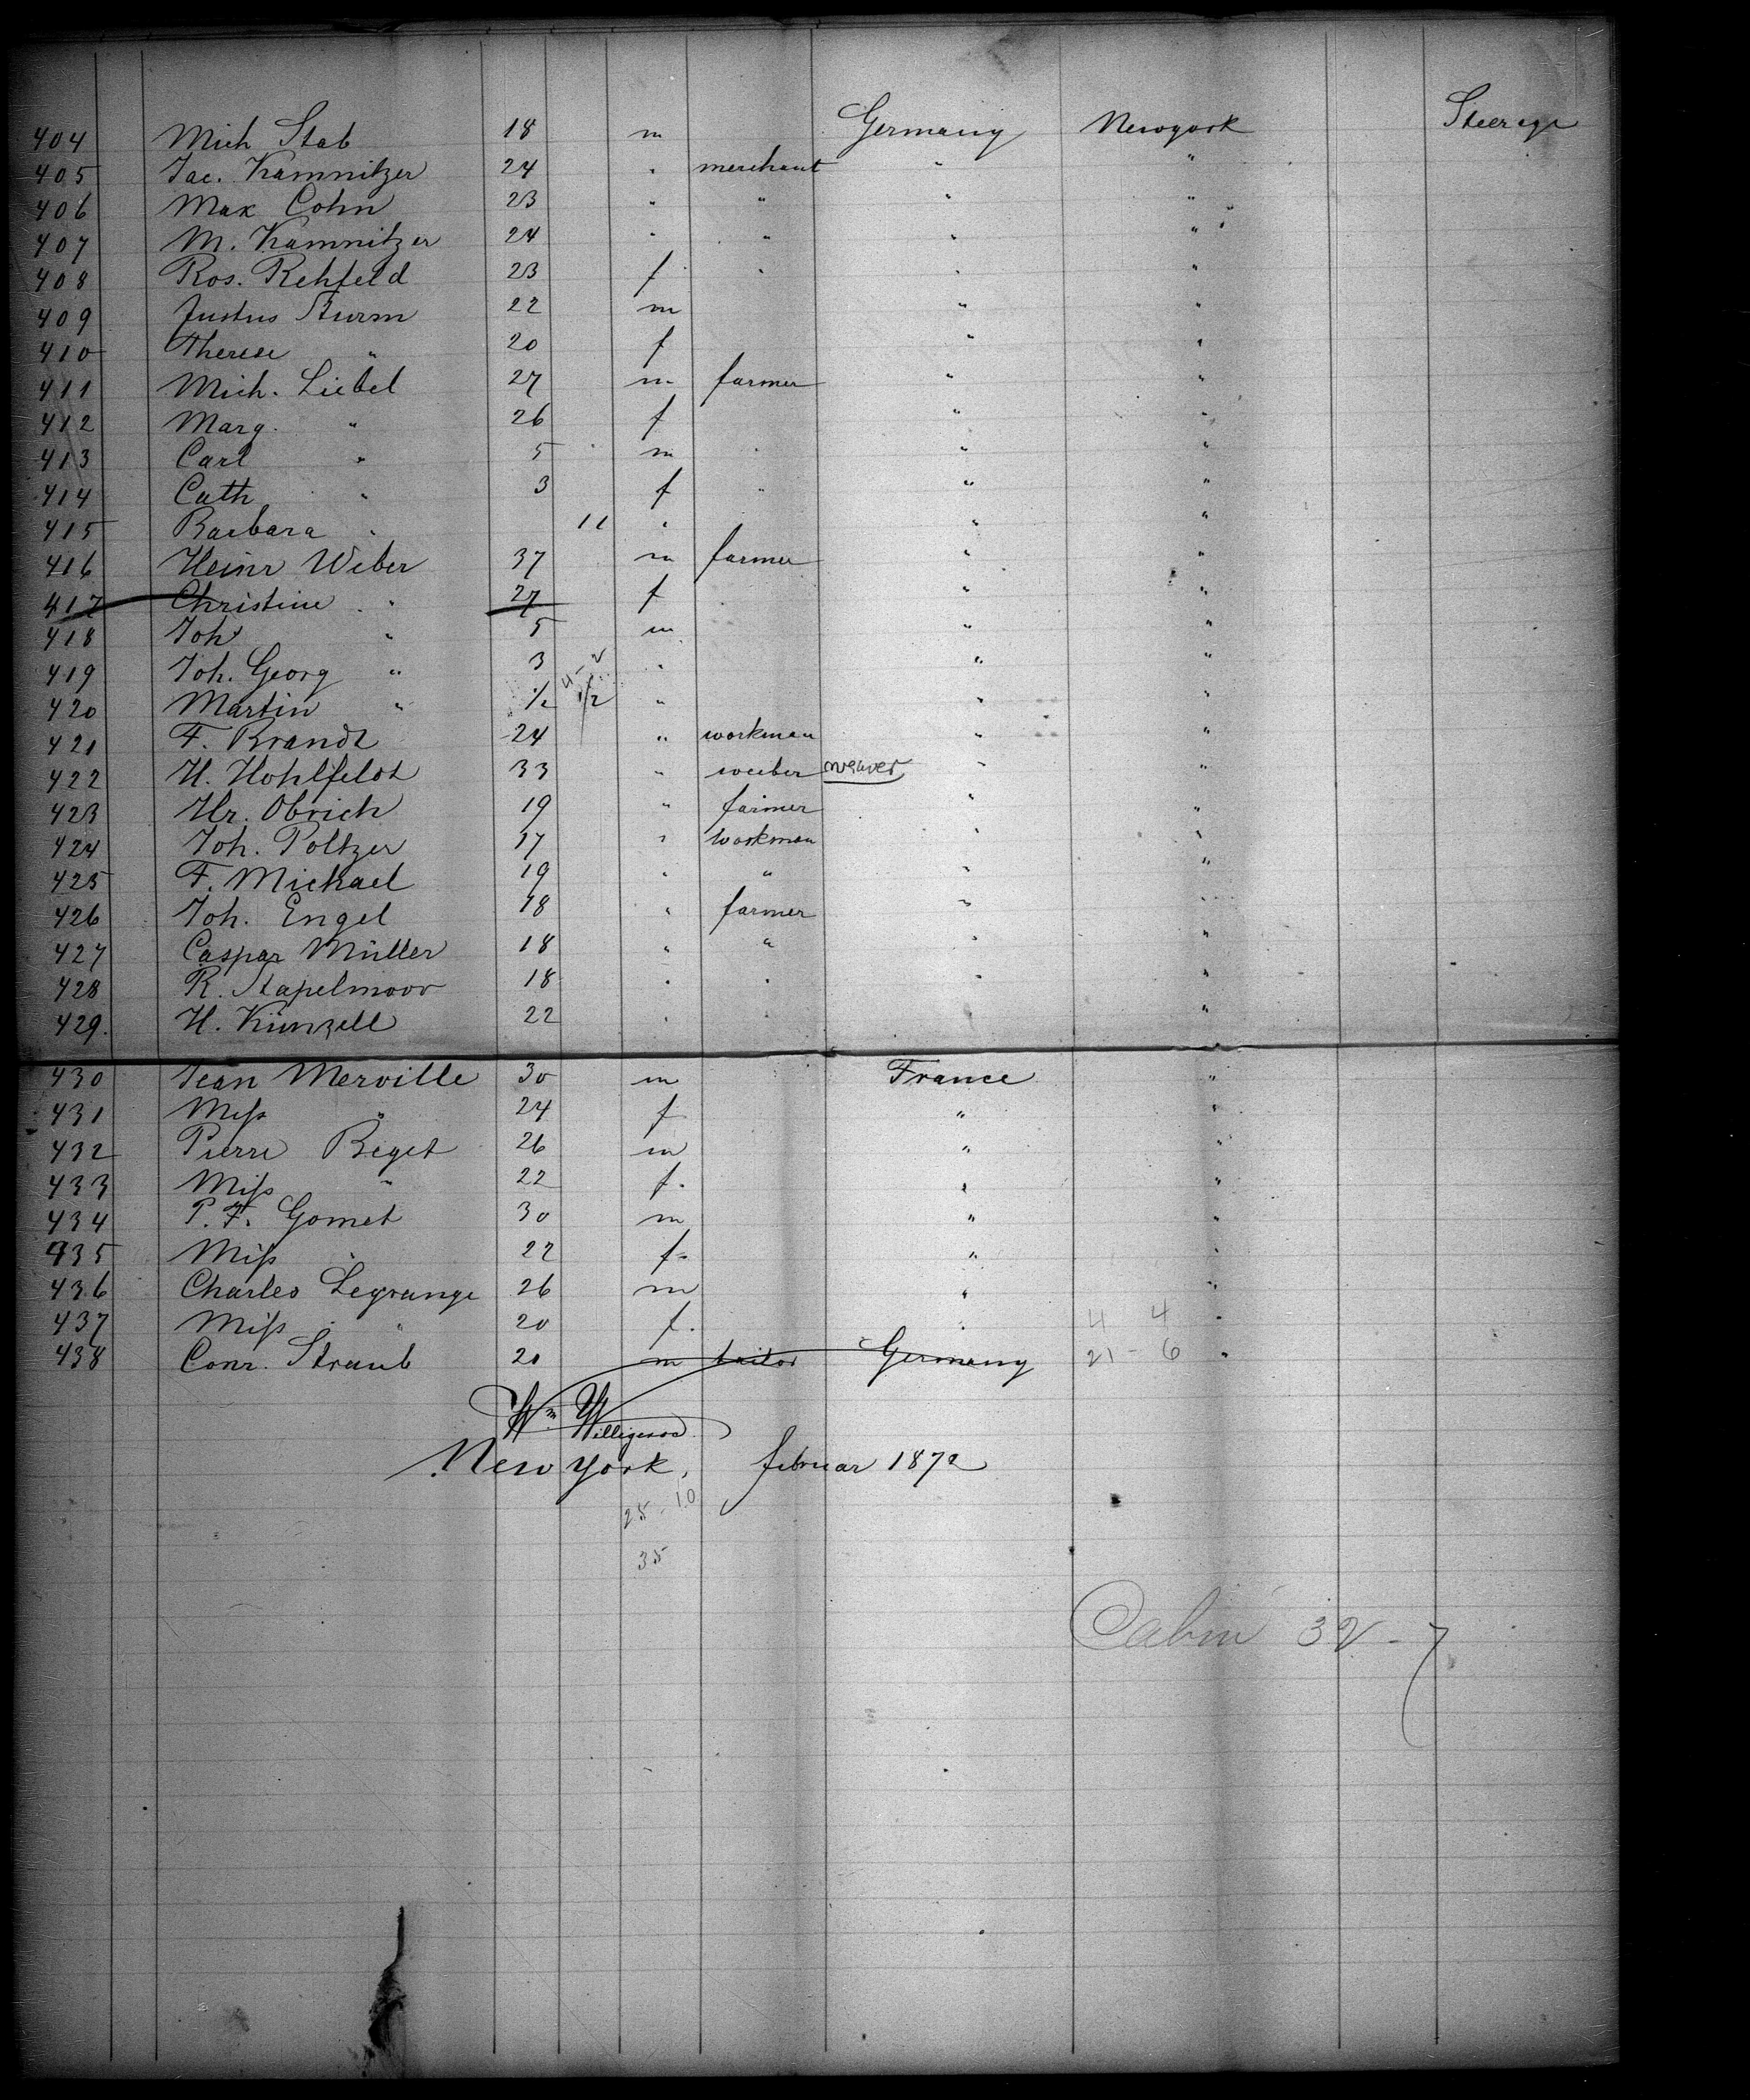 404 Mich Stab 18 m Germany Newyork Steerage
405 Jac. Kamnitzer 24 " merchant " "
406 Max Cohn 23 " " " "
407 M. Kamnitzer 24 " " " "
408 Ros. Rehfeld 23 f " " "
409 Justus Sturm 22 m " "
410 Therese " 20 f " "
411 Mich. Liebel 27 m farmer " "
412 Marg. " 26 f " "
413 Carl " 5 m " "
414 Cath " 3 f " " "
415 Barbara " 11 " " "
416 Heinr Weber 37 m farmer " "
417 Christine " 27 f " "
418 Joh " 5 m " "
419 Joh. Georg " 3 " " "
420 Martin " 1/2 1/2 " " "
421 F. Brandt 24 " workman " "
422 H. Hohlfeldt 33 " weeber weaver " "
423 Hr. Obrich 19 " farmer " "
424 Joh. Poltzer 17 " workman " "
425 F. Michael 19 " " " "
426 Joh. Engel 18 " farmer " "
427 Caspar Müller 18 " " " "
428 R. Stapelmoor 18 " " " "
429. H. Künzell 22 " " "
430 Jean Merville 30 m France "
431 Miss " 24 f " "
432 Pierre Beget 26 m " "
433 Miss " 22 f. " "
434 P. F. Gomet 30 m " "
435 Miss " 22 f " "
436 Charles Legrange 26 m " "
437 Miss " 20 f. " 4 4 "
438 Conr. Straub 20 m tailor Germany 21 - 6 "
Wm Willigerod
New York, februar 1872
25 - 10
35
Cabin 32 - 7